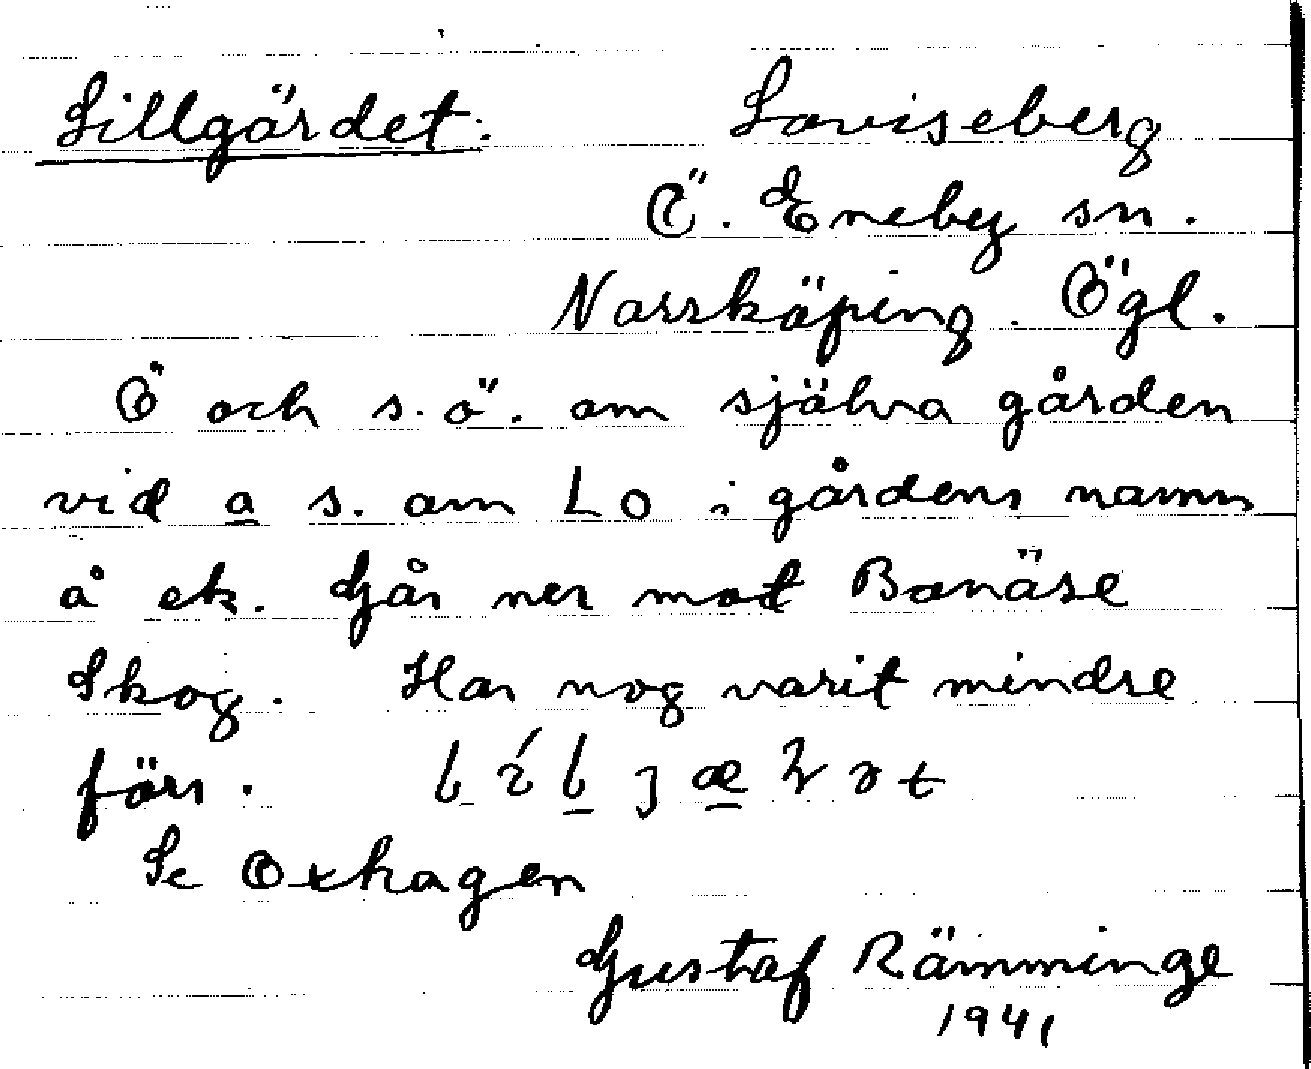 Lillgärdet. Loviseberg
Ö. Eneby sn.
Norrköping. Ögl.
Ö och s. ö. om själva gården
vid a s. om Lo i gårdens namn
å ek. Går ner mot Bonäse
Skog. Har nog varit mindre
förr.
Se Oxhagen
Gustaf Rämminge
1941